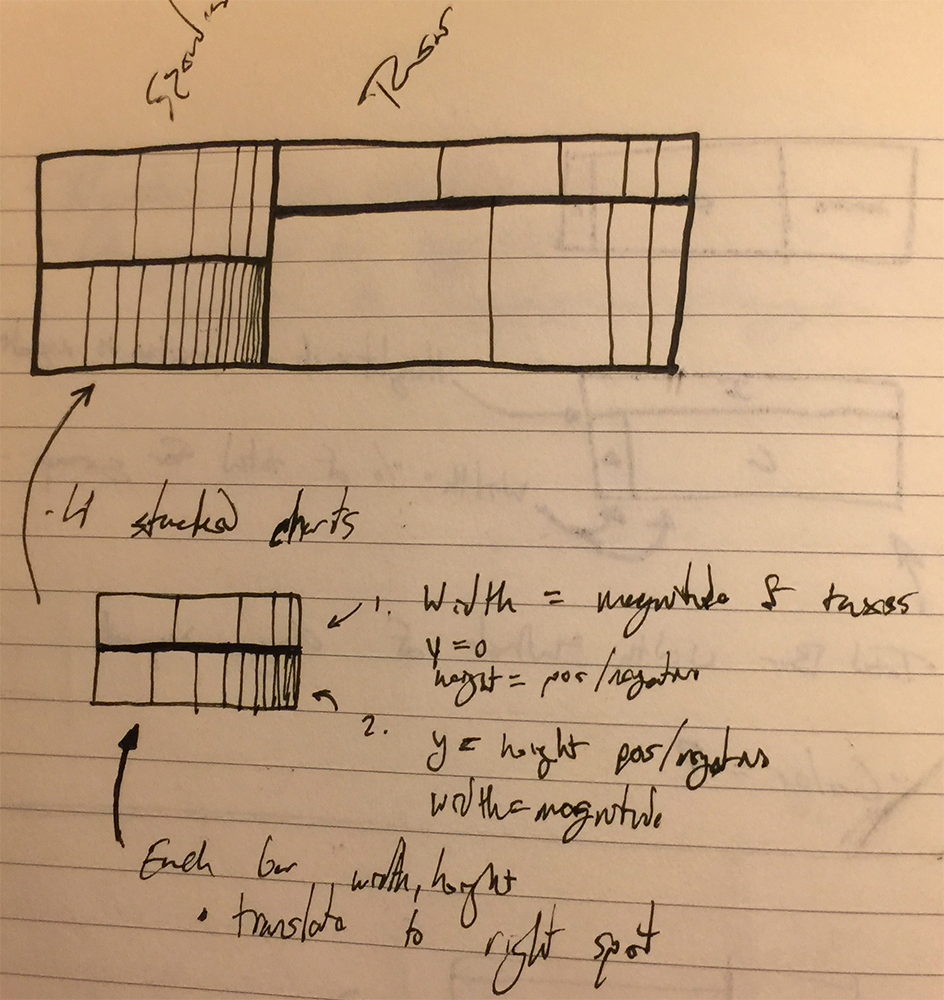 - 4 stacked charts
1. Width = magnitude of taxes
y = 0
height = pos/negative
2. y = height pos/negative
width = magnitude
Each bar width, height
• translate to right spot